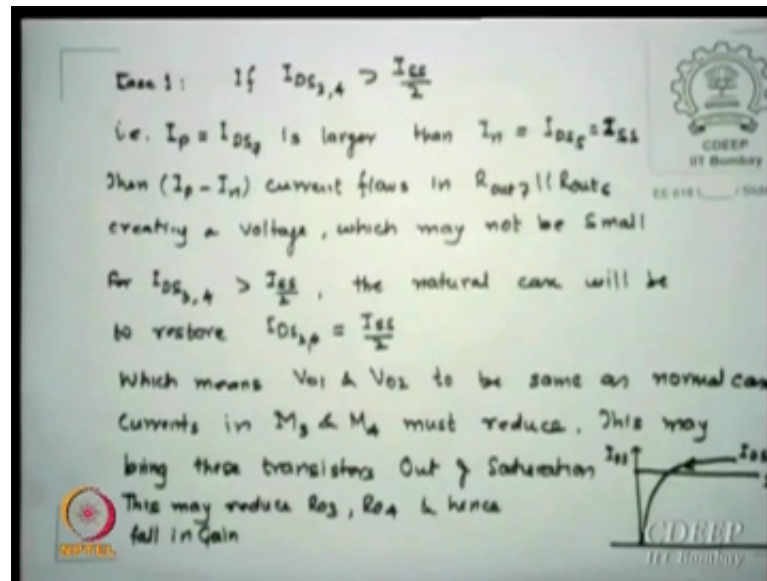 Case 1: If IDS3,4 > ISS/2
i.e. Ip = IDS3 is larger than In = IDS5 = ISS
Then (Ip - In) current flows in Rout7 || Rout6
creating a voltage, which may not be small
For IDS3,4 > ISS/2, the natural case will be
to restore IDS3,4 = ISS/2
Which means Vo1 & Vo2 to be same as normal case
Currents in M3 & M4 must reduce. This may
bring these transistors Out of Saturation
This may reduce Ro3, Ro4 & hence
fall in Gain
IDS
IDS
CDEEP
IIT Bombay
EE 618 L / Slide
NPTEL
CDEEP
IIT Bombay